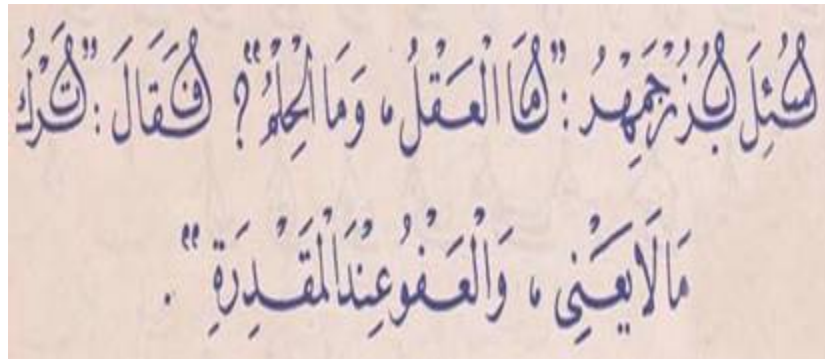 سُئِلَ بُزُرْجَمِهْرُ : "مَا الْعَقْلُ ، وَمَا الْحِلْمُ" ؟ فَقَالَ : "تَرْكُ
مَا لَا يَعْنِى ، وَالْعَفْوُ عِنْدَ الْمَقْدِرَةِ" .